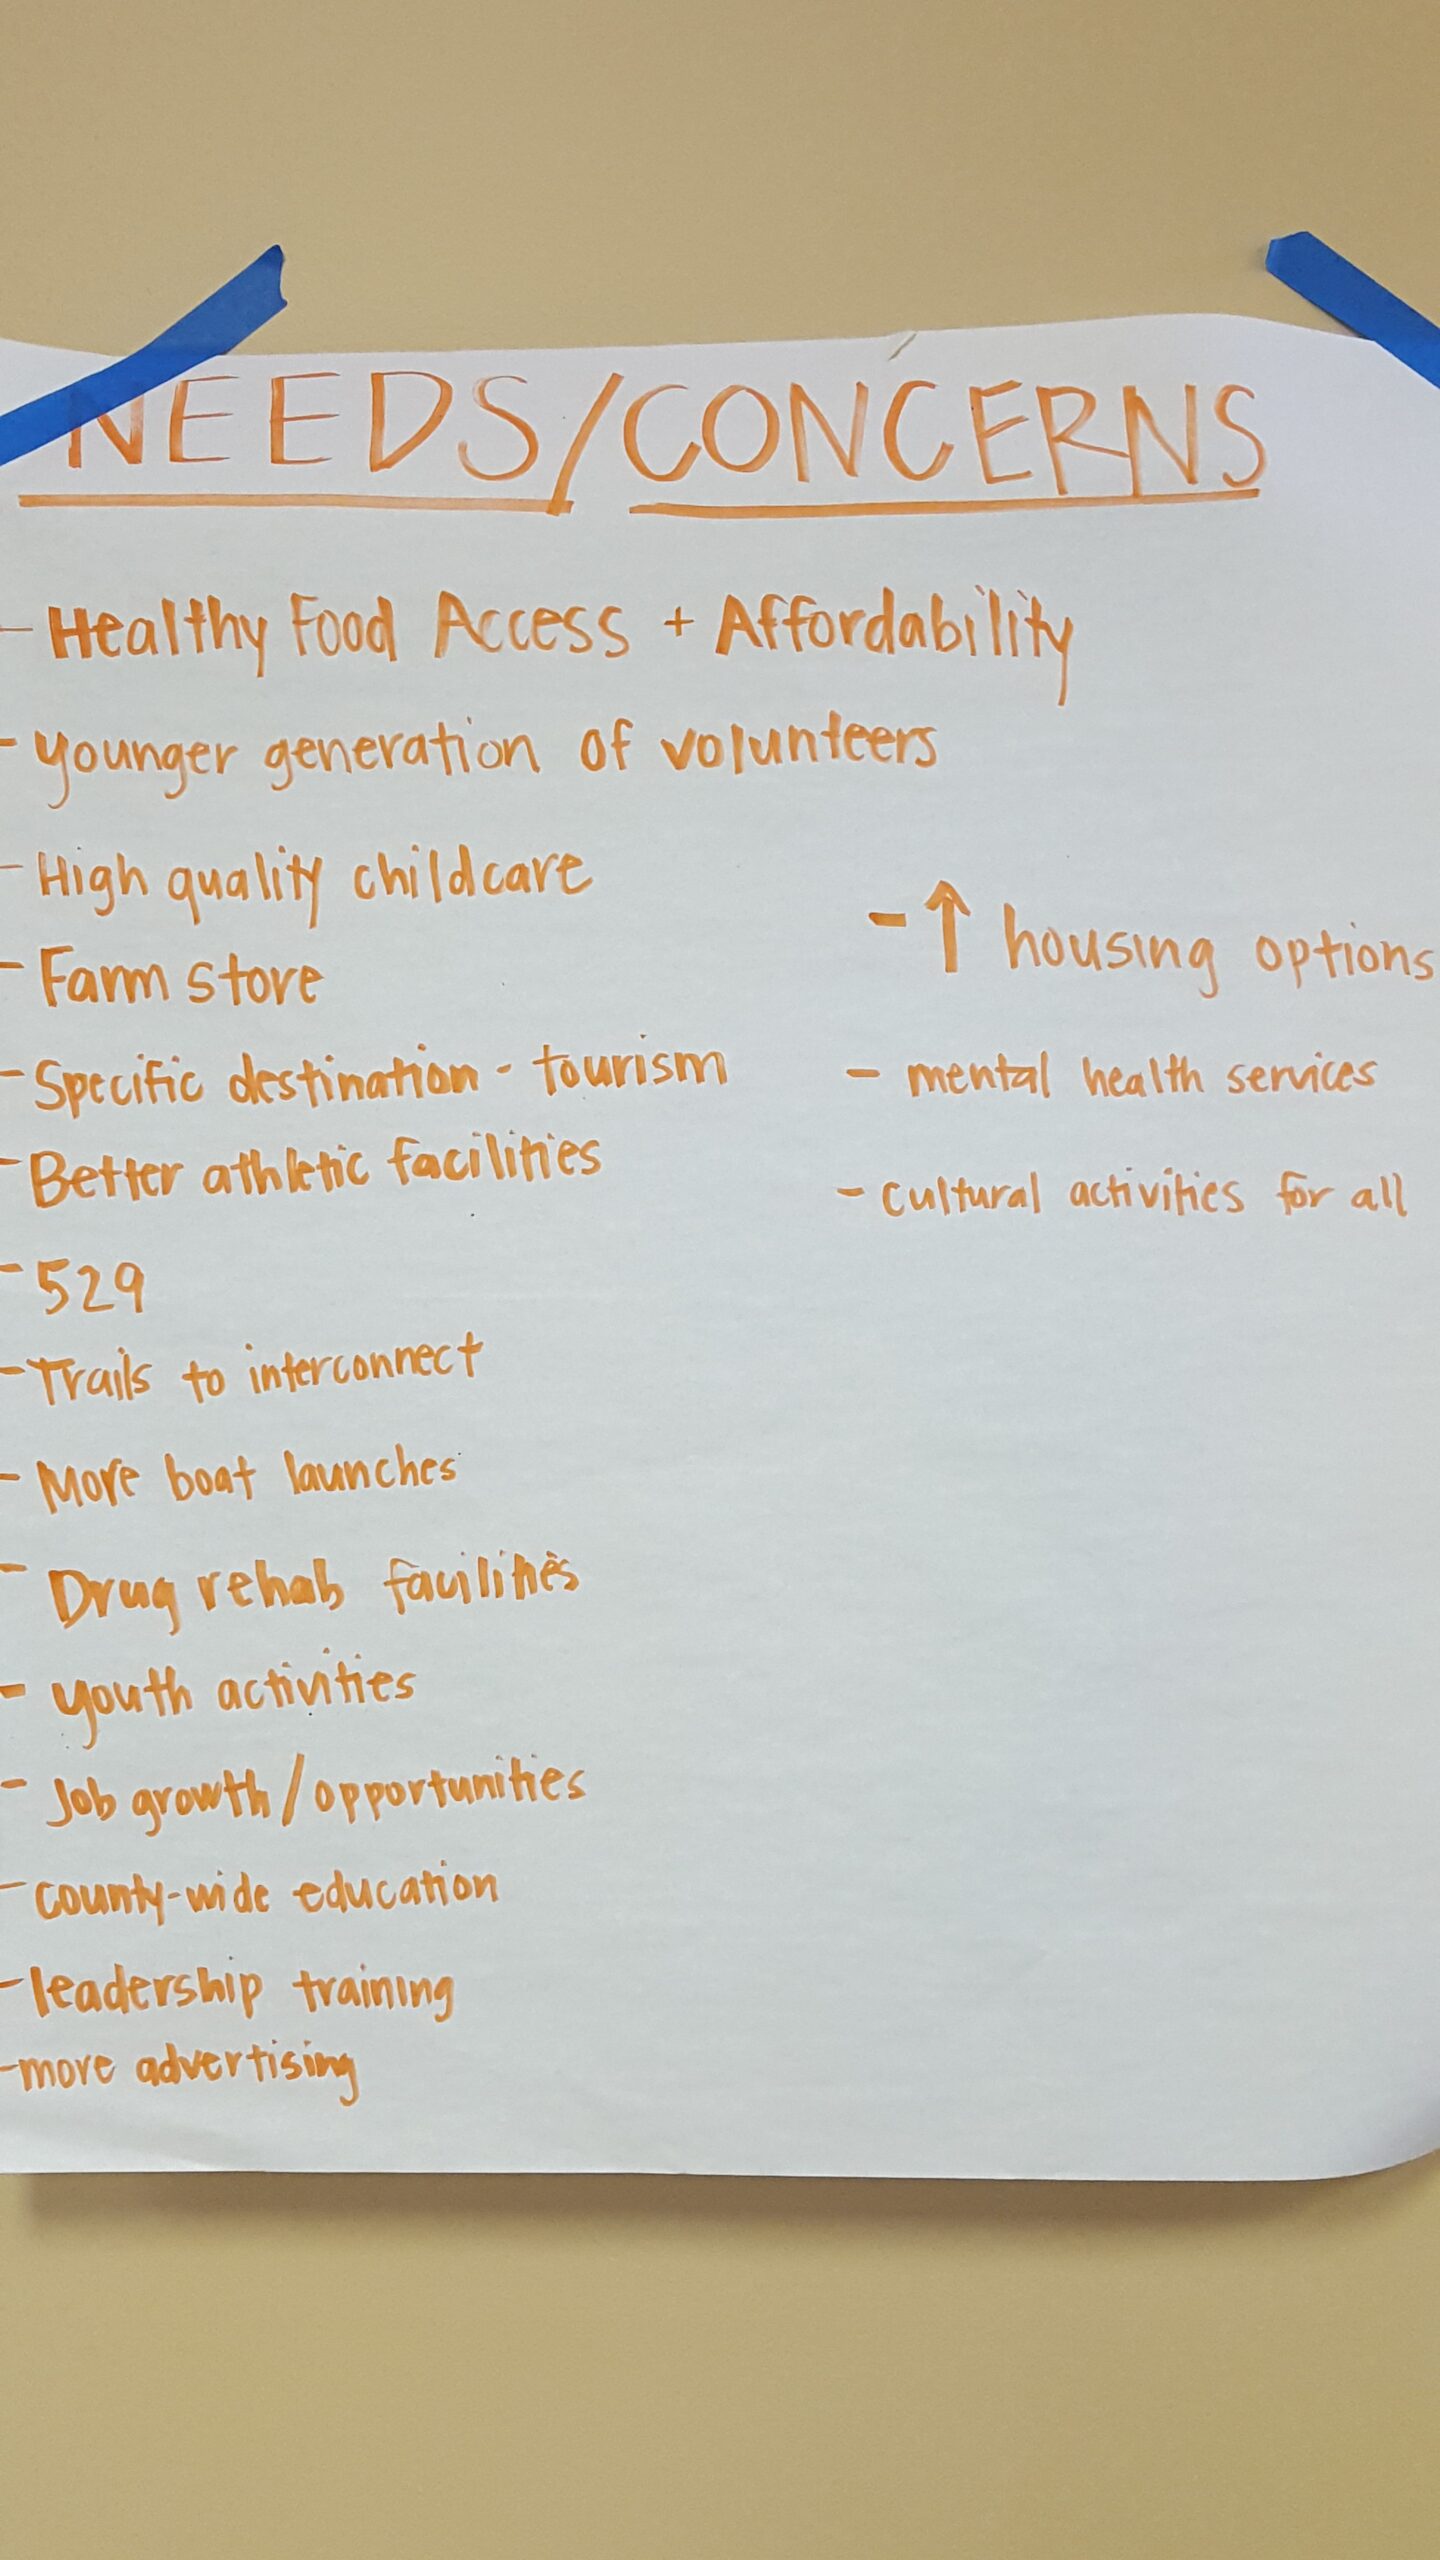 NEEDS/CONCERNS
- Healthy Food Access + Affordability
- younger generation of volunteers
- High quality childcare
- Farm store
- Specific destination - tourism
- Better athletic facilities
- 529
- Trails to interconnect
- More boat launches
- Drug rehab facilities
- youth activities
- Job growth/opportunities
- county-wide education
- leadership training
- more advertising
- ↑ housing options
- mental health services
- cultural activities for all